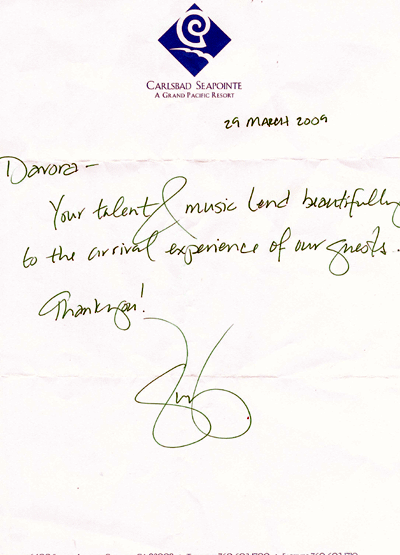 CARLSBAD SEAPOINTE
A GRAND PACIFIC RESORT
29 MARCH 2009
Davora –
Your talent & music lend beautifully
to the arrival experience of our guests.
Thank you!